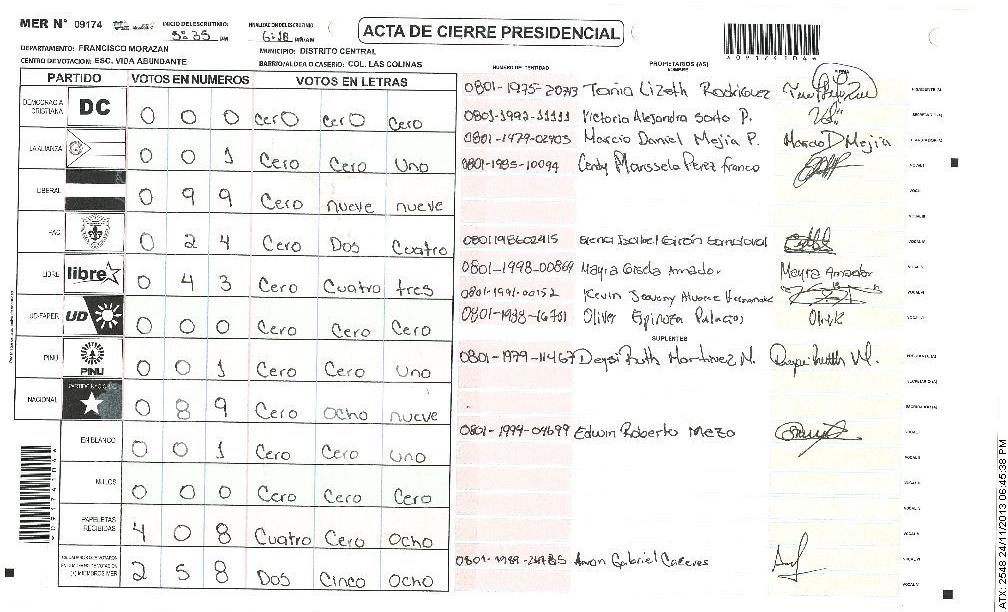 MER N° 09174
INICIO DE ESCRUTINIO: 5:35 PM
FINALIZACION DEL ESCRUTINIO 6:18 PM/AM
ACTA DE CIERRE PRESIDENCIAL
DEPARTAMENTO: FRANCISCO MORAZAN
MUNICIPIO: DISTRITO CENTRAL
CENTRO DE VOTACION: ESC. VIDA ABUNDANTE
BARRIO/ALDEA O CASERIO: COL. LAS COLINAS
PARTIDO VOTOS EN NUMEROS VOTOS EN LETRAS
DEMOCRACIA CRISTIANA DC 0 0 0 cero cero cero
LA ALIANZA 0 0 1 Cero Cero Uno
LIBERAL 0 9 9 Cero nueve nueve
PAC 0 2 4 Cero Dos Cuatro
LIBRE libre 0 4 3 Cero Cuatro tres
UD-FAPER UD 0 0 0 Cero Cero Cero
PINU PINU 0 0 1 Cero Cero uno
NACIONAL PARTIDO NACIONAL 0 8 9 Cero ocho nueve
EN BLANCO 0 0 1 Cero Cero uno
NULOS 0 0 0 Cero Cero Cero
PAPELETAS RECIBIDAS 4 0 8 Cuatro Cero Ocho
2 5 8 Dos Cinco Ocho
NUMERO DE IDENTIDAD
PROPIETARIOS (AS)
NOMBRE
FIRMA
Tania Lizeth Rodriguez
PRESIDENTE (A)
0801-1992-11111 Victoria Alejandra Sorto P.
SECRETARIO (A)
0801-1979-02905 Marcio Daniel Mejia P. Marcio D Mejia
ESCRUTADOR (A)
0801-1985-10094 Perez franco
VOCAL I
VOCAL II
VOCAL III
0801198602415 Elena Isabel Girón Sandoval
VOCAL IV
0801-1998-00869 Mayra Gisela Amador Mayra Amador
VOCAL V
0801-1991-00152 Kevin
VOCAL VI
Oliver Espinoza Palacios
VOCAL VII
SUPLENTES
0801-1979-11467 Deysi Ruth Martinez N.
PRESIDENTE (A)
SECRETARIO (A)
ESCRUTADOR (A)
0801-1979-04699 Edwin Roberto Mezo
VOCAL I
VOCAL II
VOCAL III
VOCAL IV
VOCAL V
Gabriel
VOCAL VI
VOCAL VII
ATX: 2548 24/11/2013 06:45:38 PM